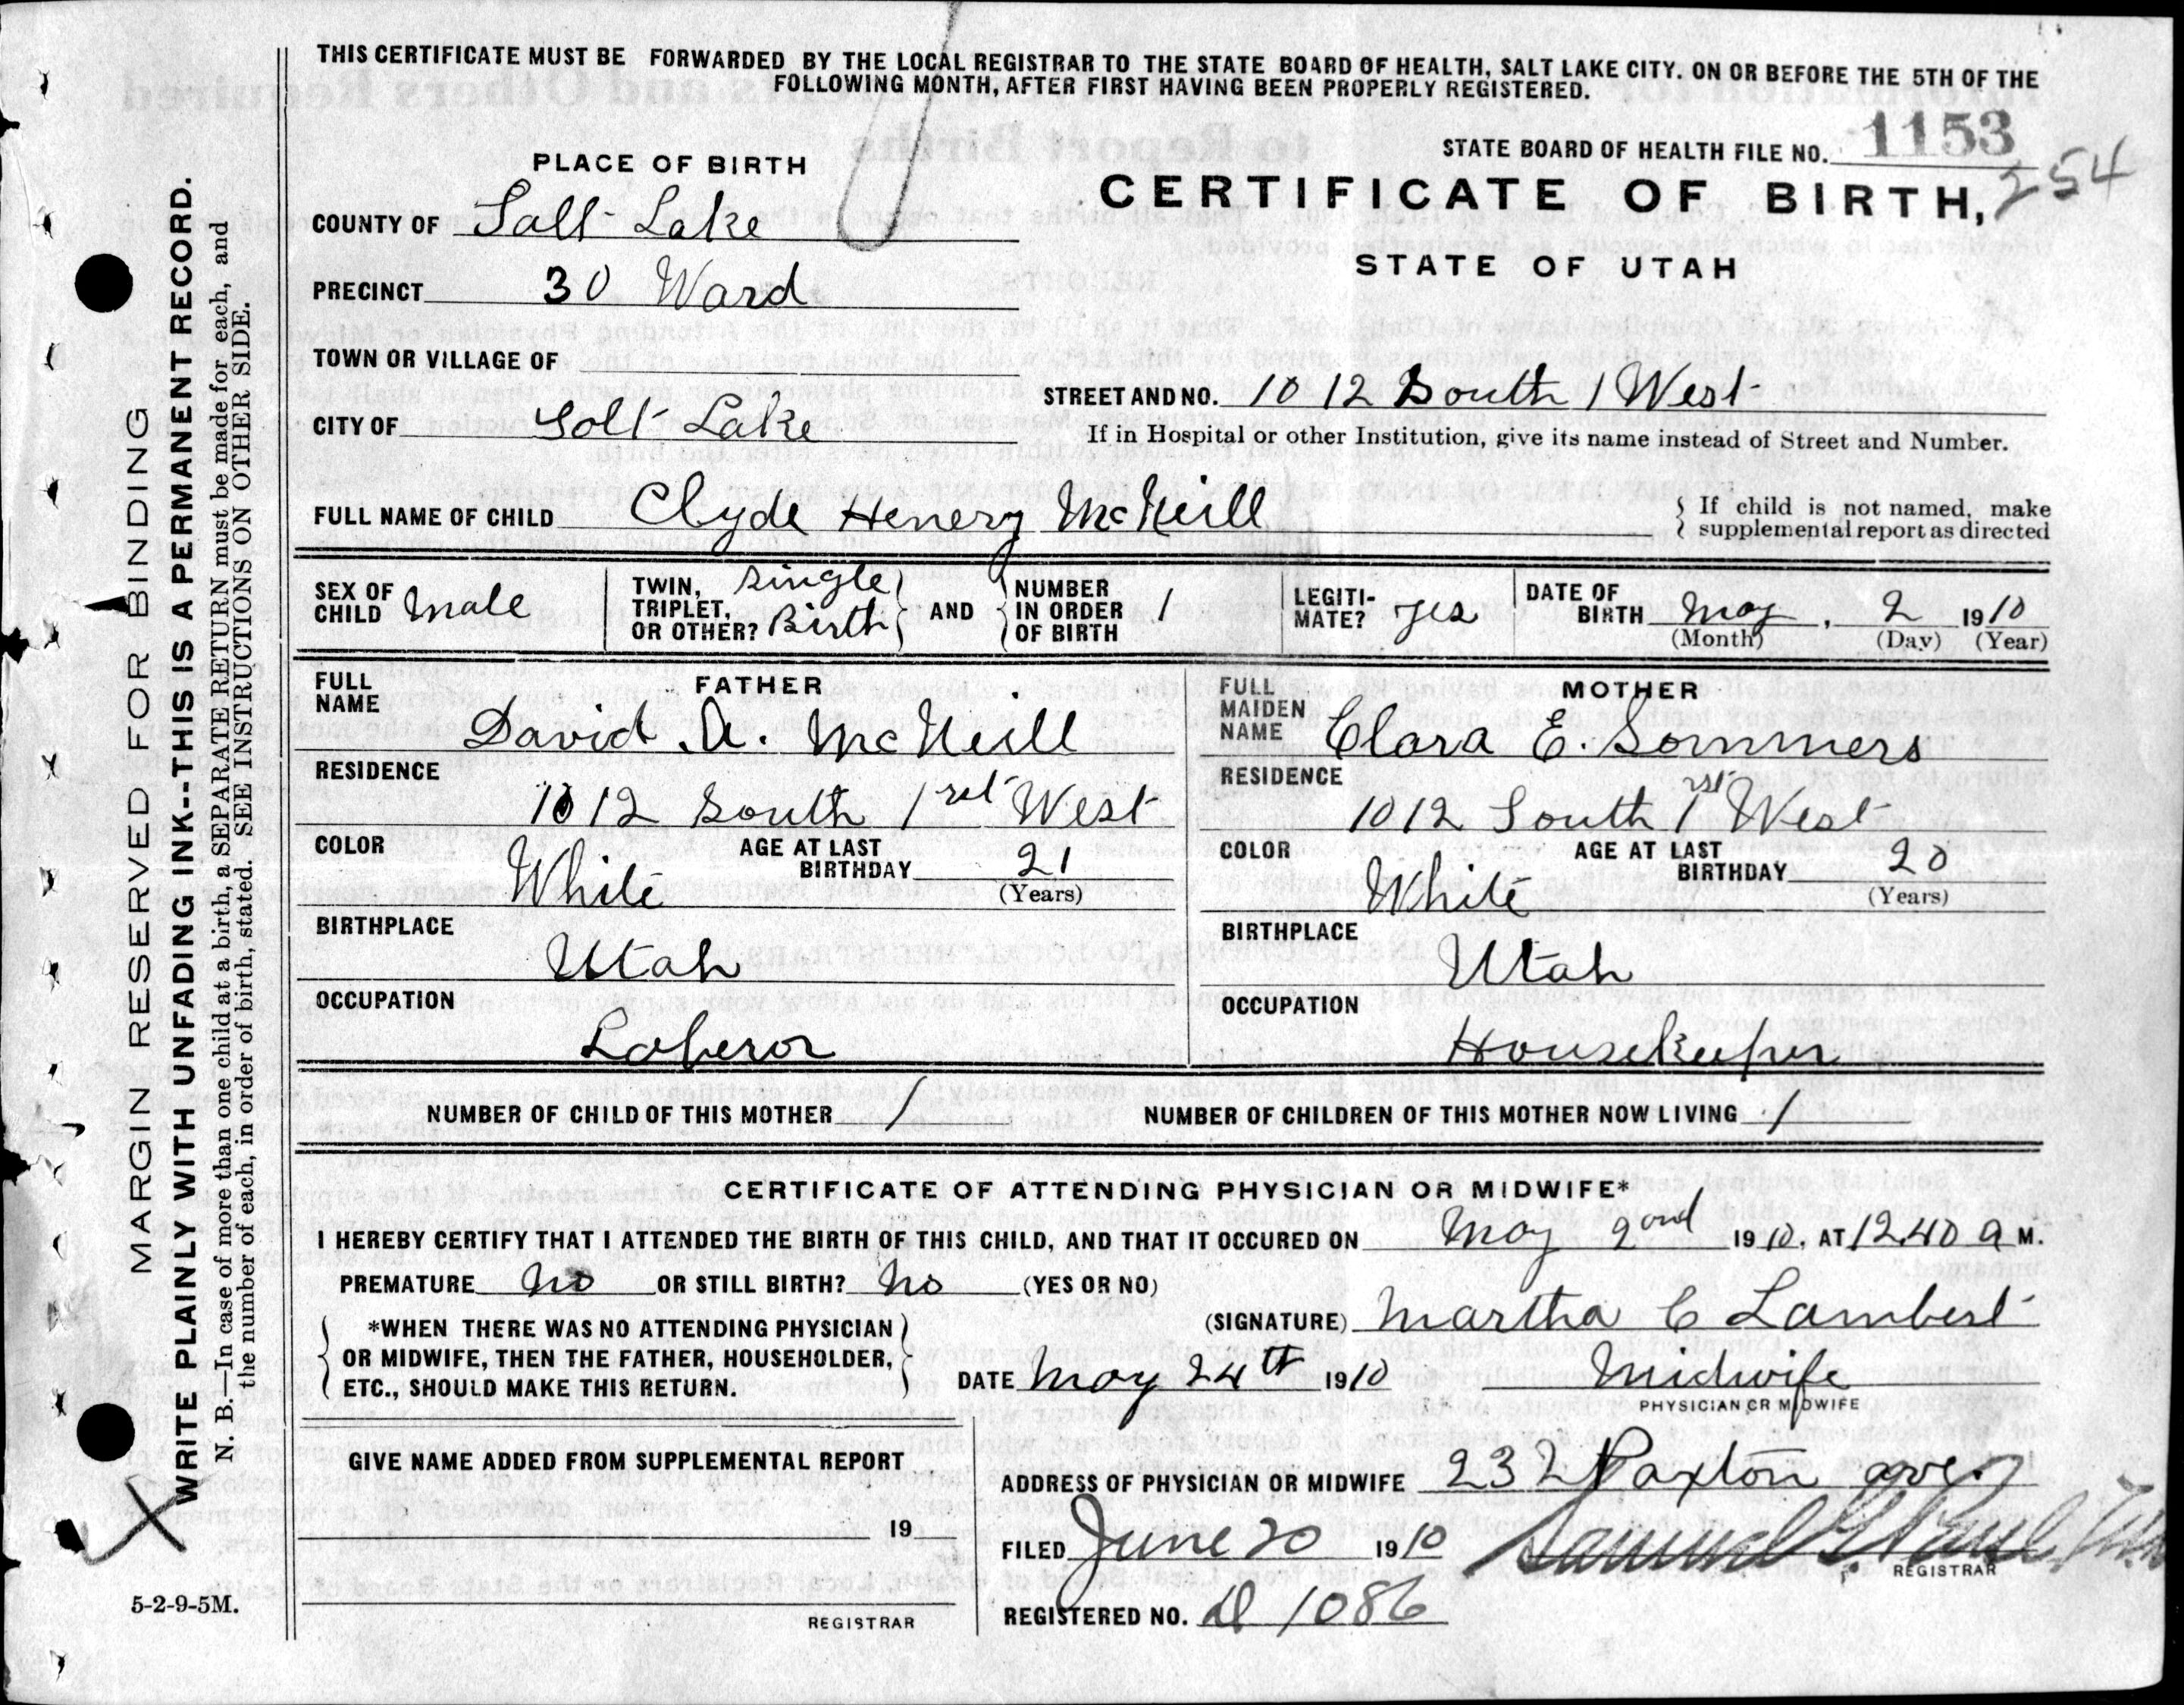 THIS CERTIFICATE MUST BE FORWARDED BY THE LOCAL REGISTRAR TO THE STATE BOARD OF HEALTH, SALT LAKE CITY. ON OR BEFORE THE 5TH OF THE
FOLLOWING MONTH, AFTER FIRST HAVING BEEN PROPERLY REGISTERED.
STATE BOARD OF HEALTH FILE NO. 1153
254
PLACE OF BIRTH
CERTIFICATE OF BIRTH,
STATE OF UTAH
COUNTY OF Salt Lake
PRECINCT 30 Ward
TOWN OR VILLAGE OF
CITY OF Salt Lake
STREET AND NO. 1012 South 1 West
If in Hospital or other Institution, give its name instead of Street and Number.
FULL NAME OF CHILD Clyde Henery McNeill
If child is not named, make
supplemental report as directed
SEX OF CHILD Male
TWIN, TRIPLET, OR OTHER? Single Birth
AND NUMBER IN ORDER OF BIRTH 1
LEGITI-MATE? yes
DATE OF BIRTH May, 2 1910
(Month) (Day) (Year)
FATHER
FULL NAME
David A. McNeill
RESIDENCE
1012 South 1rst West
COLOR White
AGE AT LAST BIRTHDAY 21
(Years)
BIRTHPLACE
Utah
OCCUPATION
Laberor
MOTHER
FULL MAIDEN NAME
Clara E. Sommers
RESIDENCE
1012 South 1rst West
COLOR White
AGE AT LAST BIRTHDAY 20
(Years)
BIRTHPLACE
Utah
OCCUPATION
Housekeeper
NUMBER OF CHILD OF THIS MOTHER 1
NUMBER OF CHILDREN OF THIS MOTHER NOW LIVING 1
CERTIFICATE OF ATTENDING PHYSICIAN OR MIDWIFE*
I HEREBY CERTIFY THAT I ATTENDED THE BIRTH OF THIS CHILD, AND THAT IT OCCURED ON May 2ond 1910, AT 12.40 a M.
PREMATURE No OR STILL BIRTH? No (YES OR NO)
*WHEN THERE WAS NO ATTENDING PHYSICIAN
OR MIDWIFE, THEN THE FATHER, HOUSEHOLDER,
ETC., SHOULD MAKE THIS RETURN.
(SIGNATURE) Martha C Lambert
DATE May 24th 1910
Midwife
PHYSICIAN OR MIDWIFE
GIVE NAME ADDED FROM SUPPLEMENTAL REPORT
19
REGISTRAR
ADDRESS OF PHYSICIAN OR MIDWIFE 232 Paxton ave.
FILED June 20 1910
Samuel G Paul
REGISTRAR
REGISTERED NO. D 1086
MARGIN RESERVED FOR BINDING
WRITE PLAINLY WITH UNFADING INK--THIS IS A PERMANENT RECORD.
N. B.—In case of more than one child at a birth, a SEPARATE RETURN must be made for each, and
the number of each, in order of birth, stated. SEE INSTRUCTIONS ON OTHER SIDE.
5-2-9-5M.